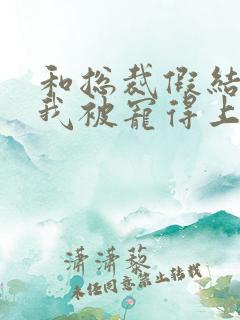 和总裁假结
我被宠得上
潇潇藜
未经同意禁止转载